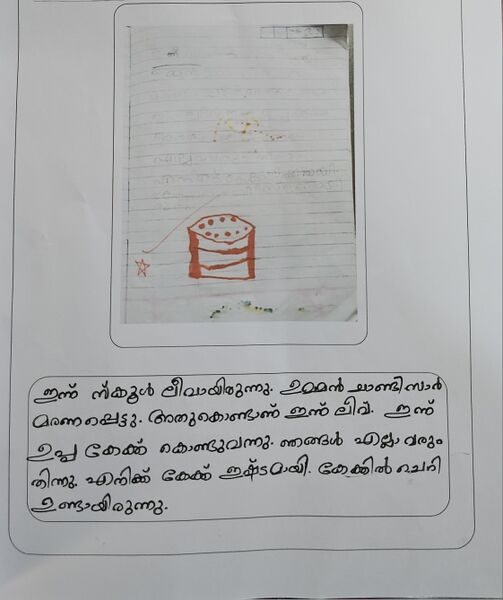 ഇന്ന് സ്ക്കൂൾ ലീവായിരുന്നു. ഉമ്മൻ ചാണ്ടി സാർ
മരണപ്പെട്ടു. അതുകൊണ്ടാണ് ഇന്ന് ലീവ്. ഇന്ന്
ഉപ്പ കേക്ക് കൊണ്ടുവന്നു. ഞങ്ങൾ എല്ലാവരും
തിന്നു. എനിക്ക് കേക്ക് ഇഷ്ടമായി. കേക്കിൽ ചെറി
ഉണ്ടായിരുന്നു.